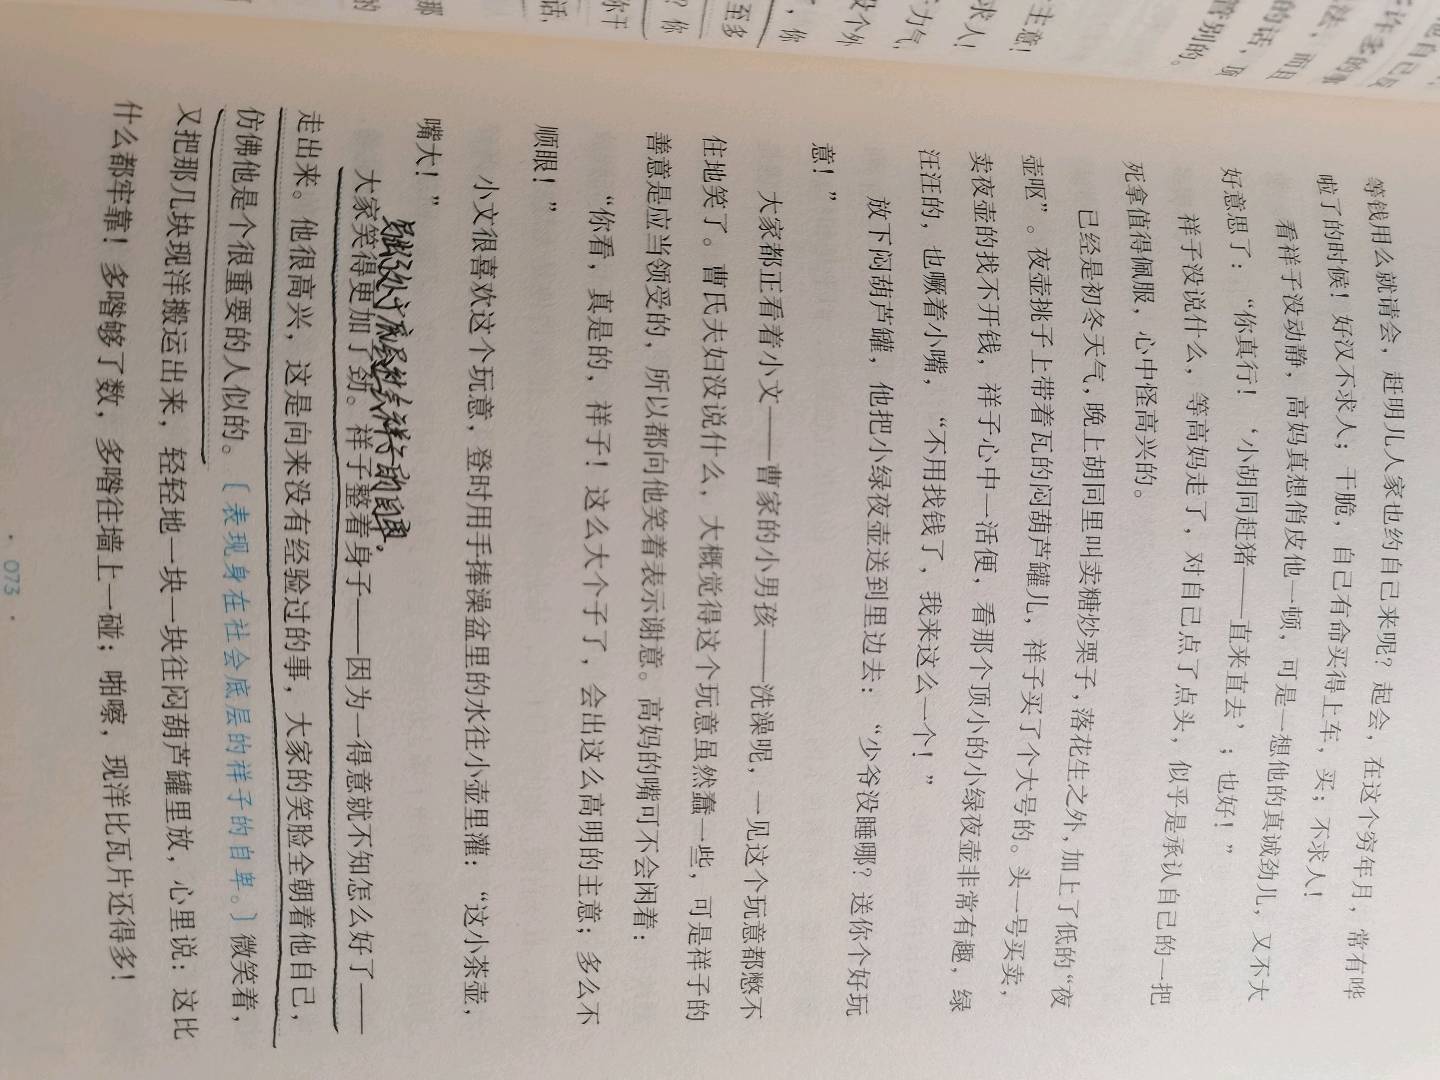 等钱用么就请会，赶明儿人家也约自己来呢？起会，在这个穷年月，常有哗
啦了的时候！好汉不求人；干脆，自己有命买得上车，买；不求人！
看祥子没动静，高妈真想俏皮他一顿，可是一想他的真诚劲儿，又不大
好意思了：“你真行！‘小胡同赶猪——直来直去’；也好！”
祥子没说什么，等高妈走了，对自己点了点头，似乎是承认自己的一把
死拿值得佩服，心中怪高兴的。
已经是初冬天气，晚上胡同里叫卖糖炒栗子，落花生之外，加上了低的“夜
壶呕”。夜壶挑子上带着瓦的闷葫芦罐儿，祥子买了个大号的。头一号买卖，
卖夜壶的找不开钱，祥子心中一活便，看那个顶小的小绿夜壶非常有趣，绿
汪汪的，也噘着小嘴，“不用找钱了，我来这么一个！”
放下闷葫芦罐，他把小绿夜壶送到里边去：“少爷没睡哪？送你个好玩
意！”
大家都正看着小文——曹家的小男孩——洗澡呢，一见这个玩意都憋不
住地笑了。曹氏夫妇没说什么，大概觉得这个玩意虽然蠢一些，可是祥子的
善意是应当领受的，所以都向他笑着表示谢意。高妈的嘴可不会闲着：
“你看，真是的，祥子！这么大个子了，会出这么高明的主意；多么不
顺眼！”
小文很喜欢这个玩意，登时用手捧澡盆里的水往小壶里灌：“这小茶壶，
嘴大！”
祥子的自卑。
大家笑得更加了劲。祥子整着身子——因为一得意就不知怎么好了——
走出来。他很高兴，这是向来没有经验过的事，大家的笑脸全朝着他自己，
仿佛他是个很重要的人似的。〔表现身在社会底层的祥子的自卑。〕微笑着，
又把那几块现洋搬运出来，轻轻地一块一块往闷葫芦罐里放，心里说：这比
什么都牢靠！多咱够了数，多咱往墙上一碰；啪嚓，现洋比瓦片还得多！
· 073 ·